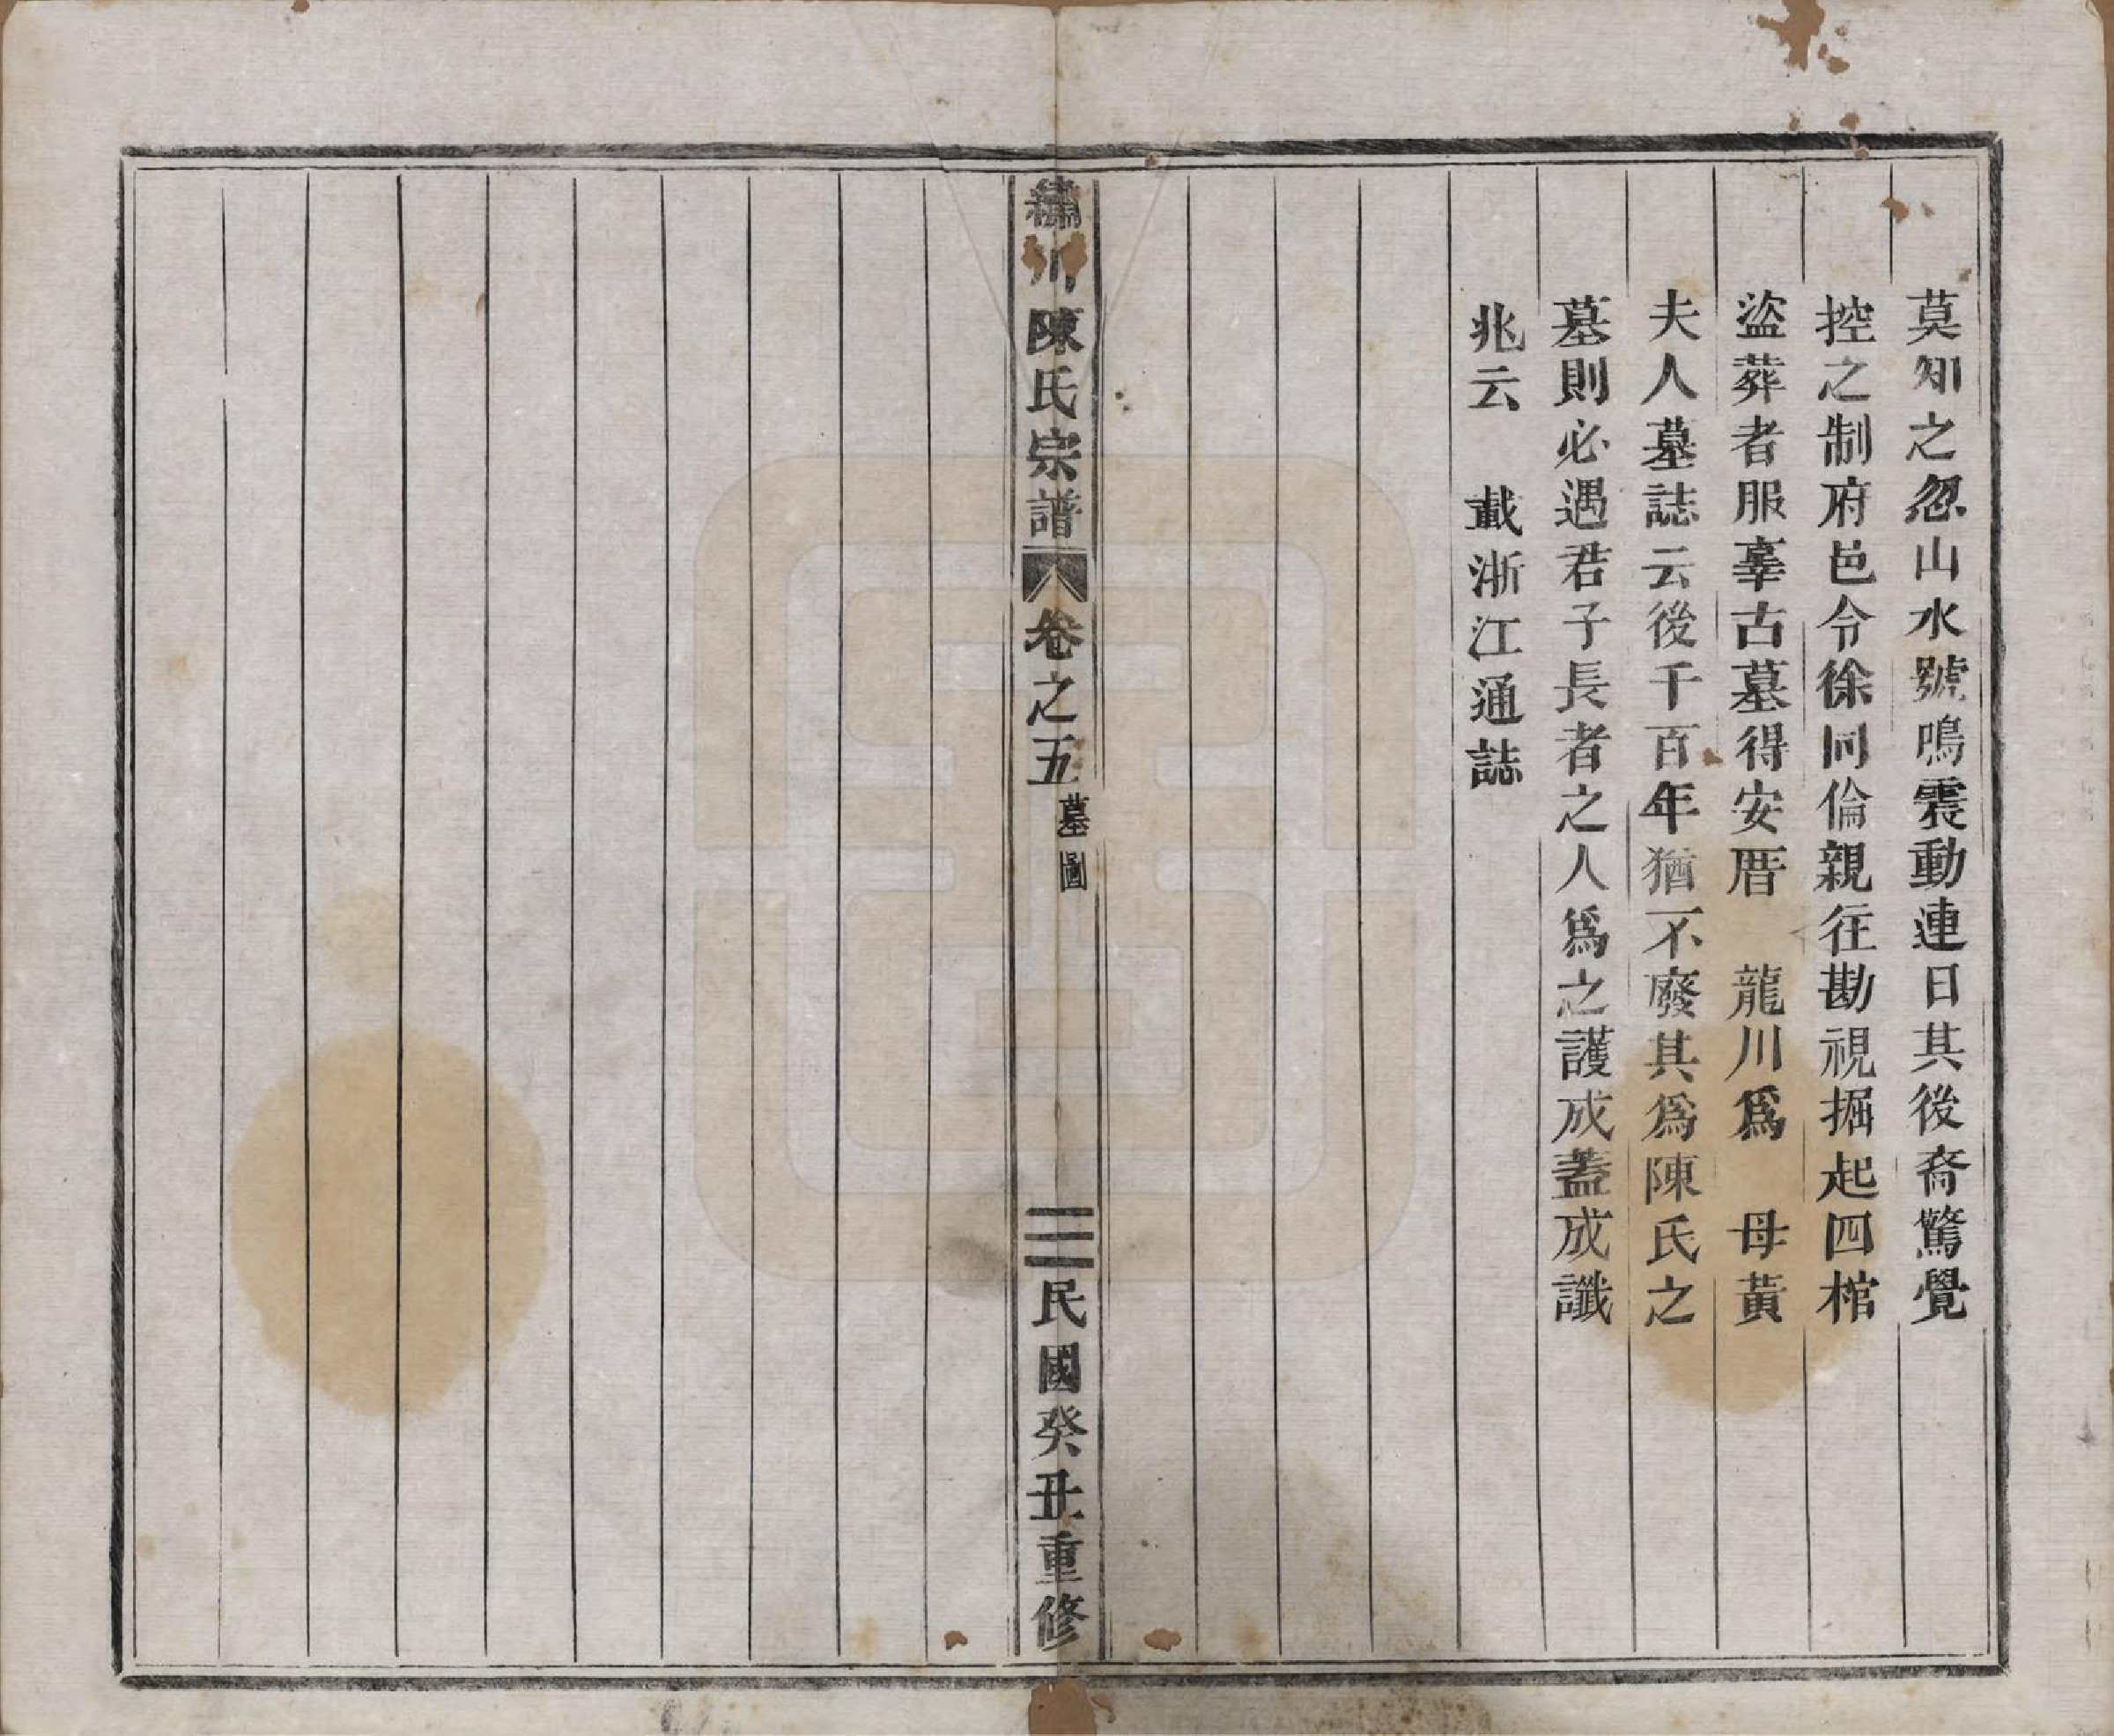 莫知之忽山水號鳴震動連日其後裔驚覺
控之制府邑令徐同倫親往勘視掘起四棺
盜葬者服辜古墓得安厝　龍川爲　母黃
夫人墓誌云後千百年猶不廢其爲陳氏之
墓則必遇君子長者之人爲之護成蓋成讖
兆云　載浙江通誌
繡川陳氏宗譜
卷之五
墓圖
三
民國癸丑重修